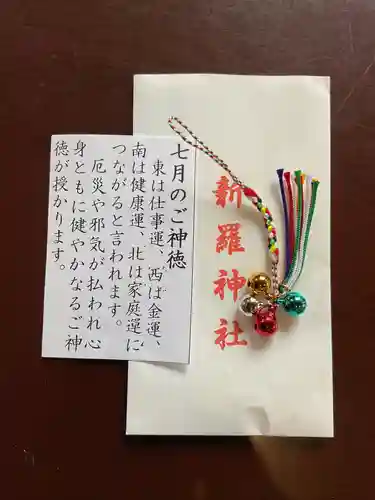 七月のご神徳
東は仕事運、西は金運、
南は健康運、北は家庭運に
つながると言われます。
厄災や邪気が払われ心
身ともに健やかなるご神
徳が授かります。
新羅神社